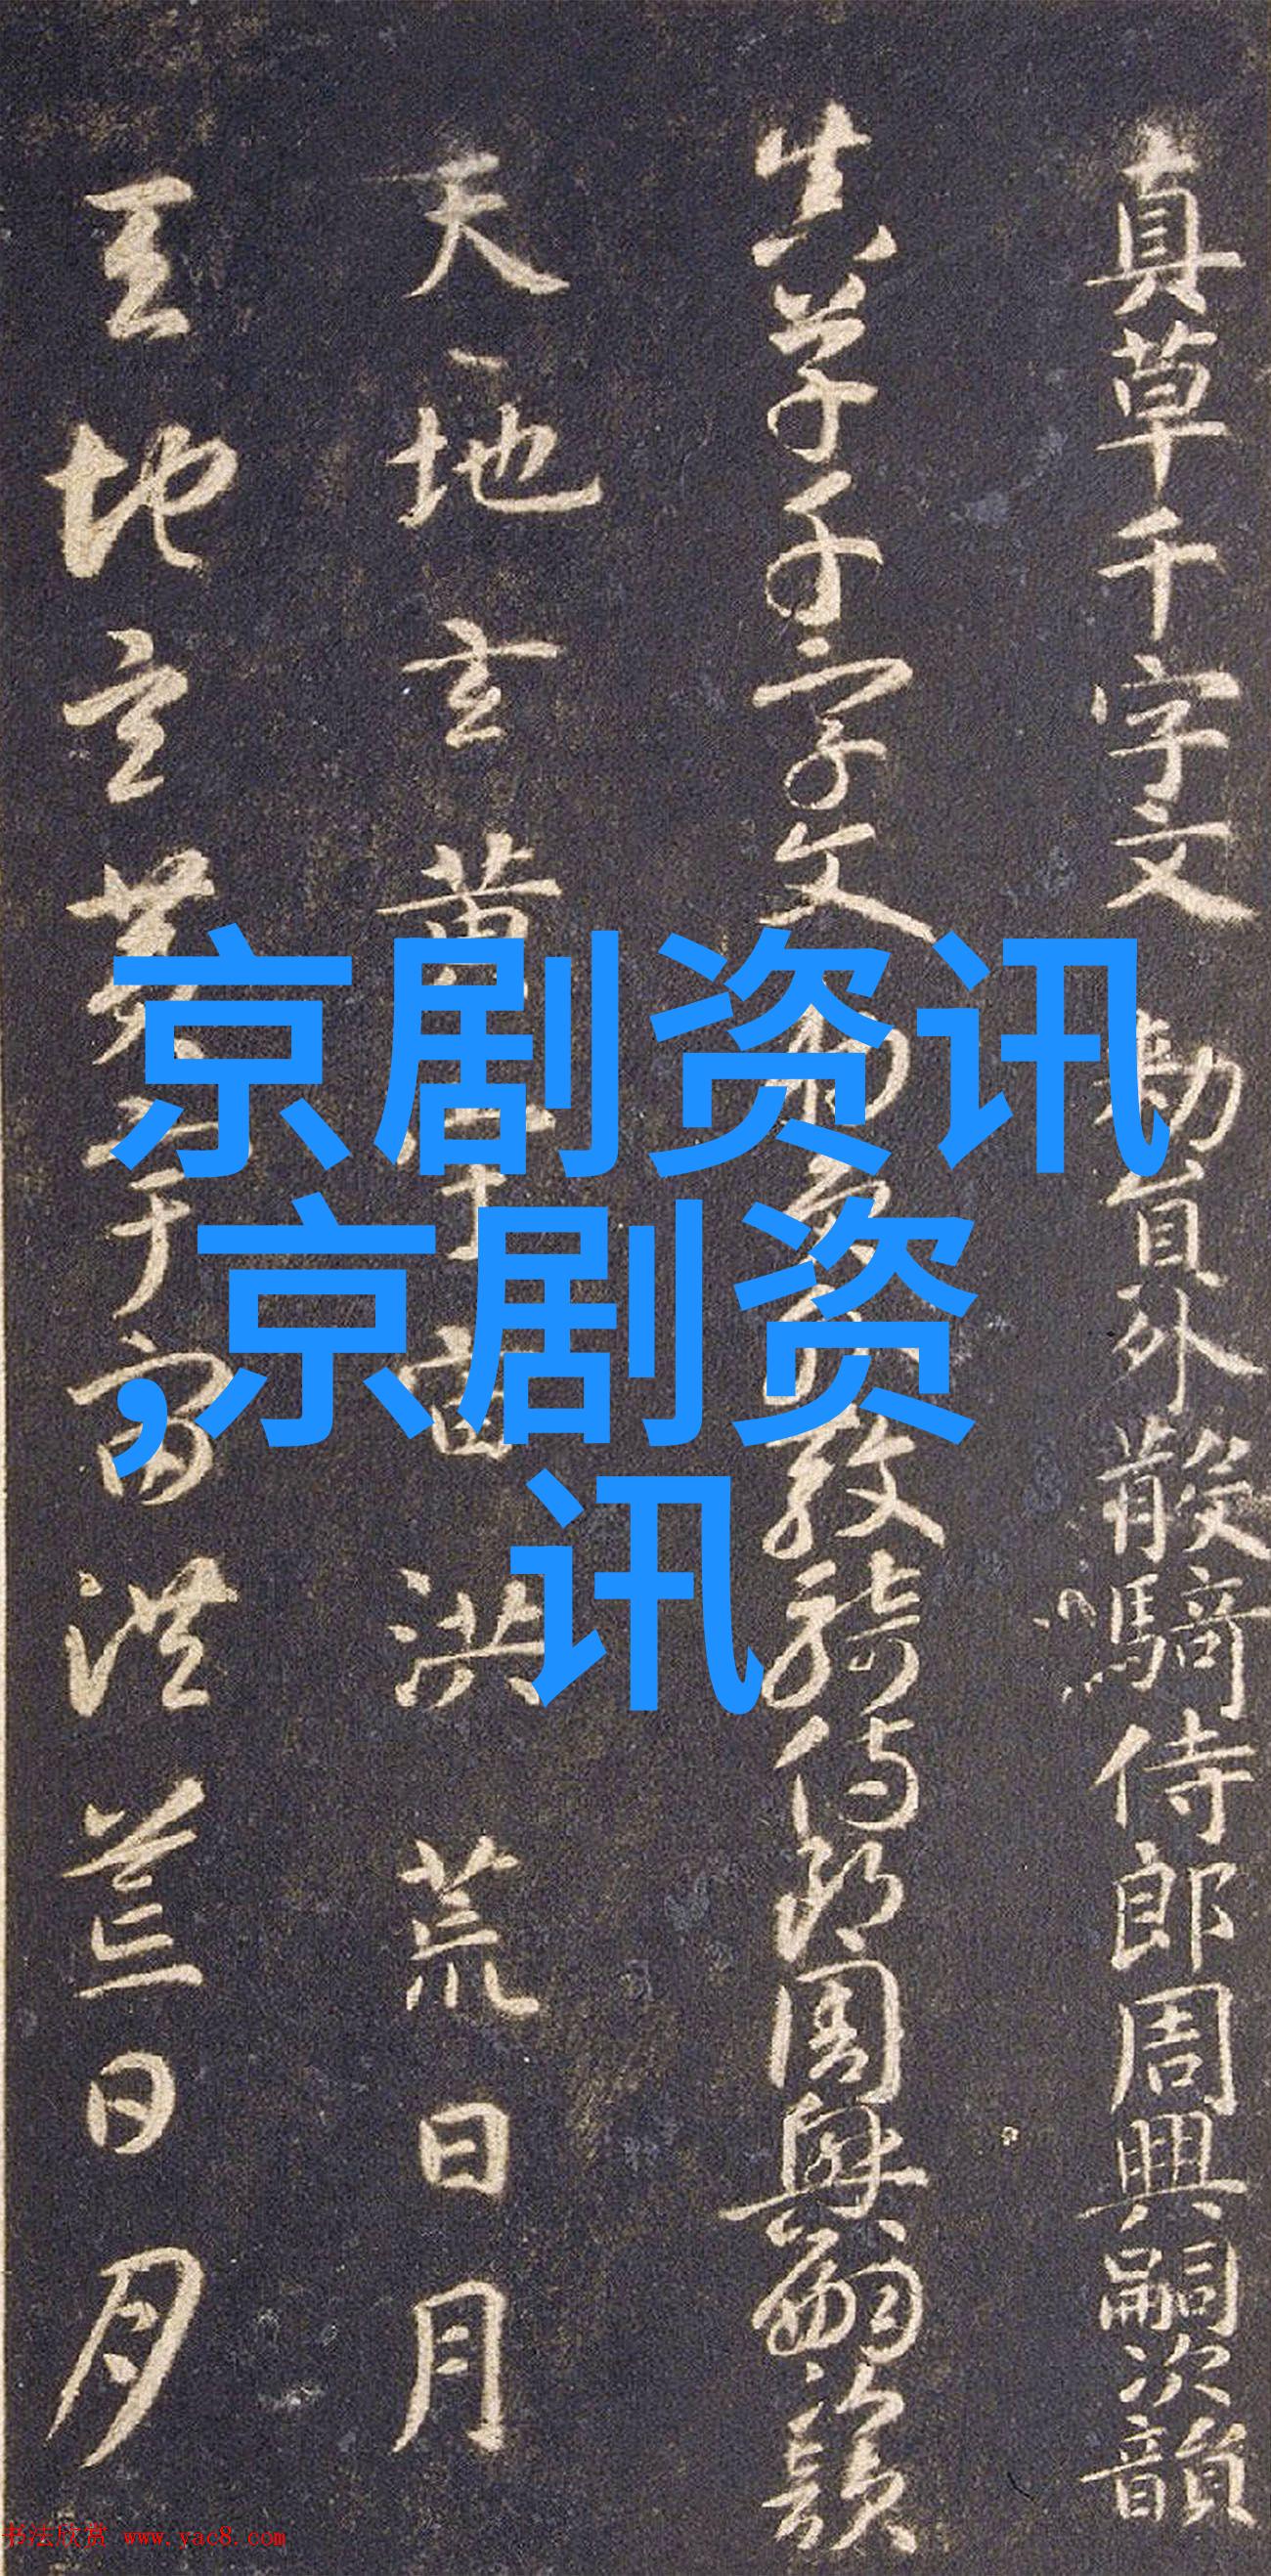 真草千字文 勅員外散騎侍郎周興嗣次韻
真草千字文 勅員外散騎侍郎周興嗣次韻
天地玄黃宇宙洪荒日月
天地玄黃宇宙洪荒日月
京剧资讯
,京剧资
讯
书法欣赏 www.yac8.com